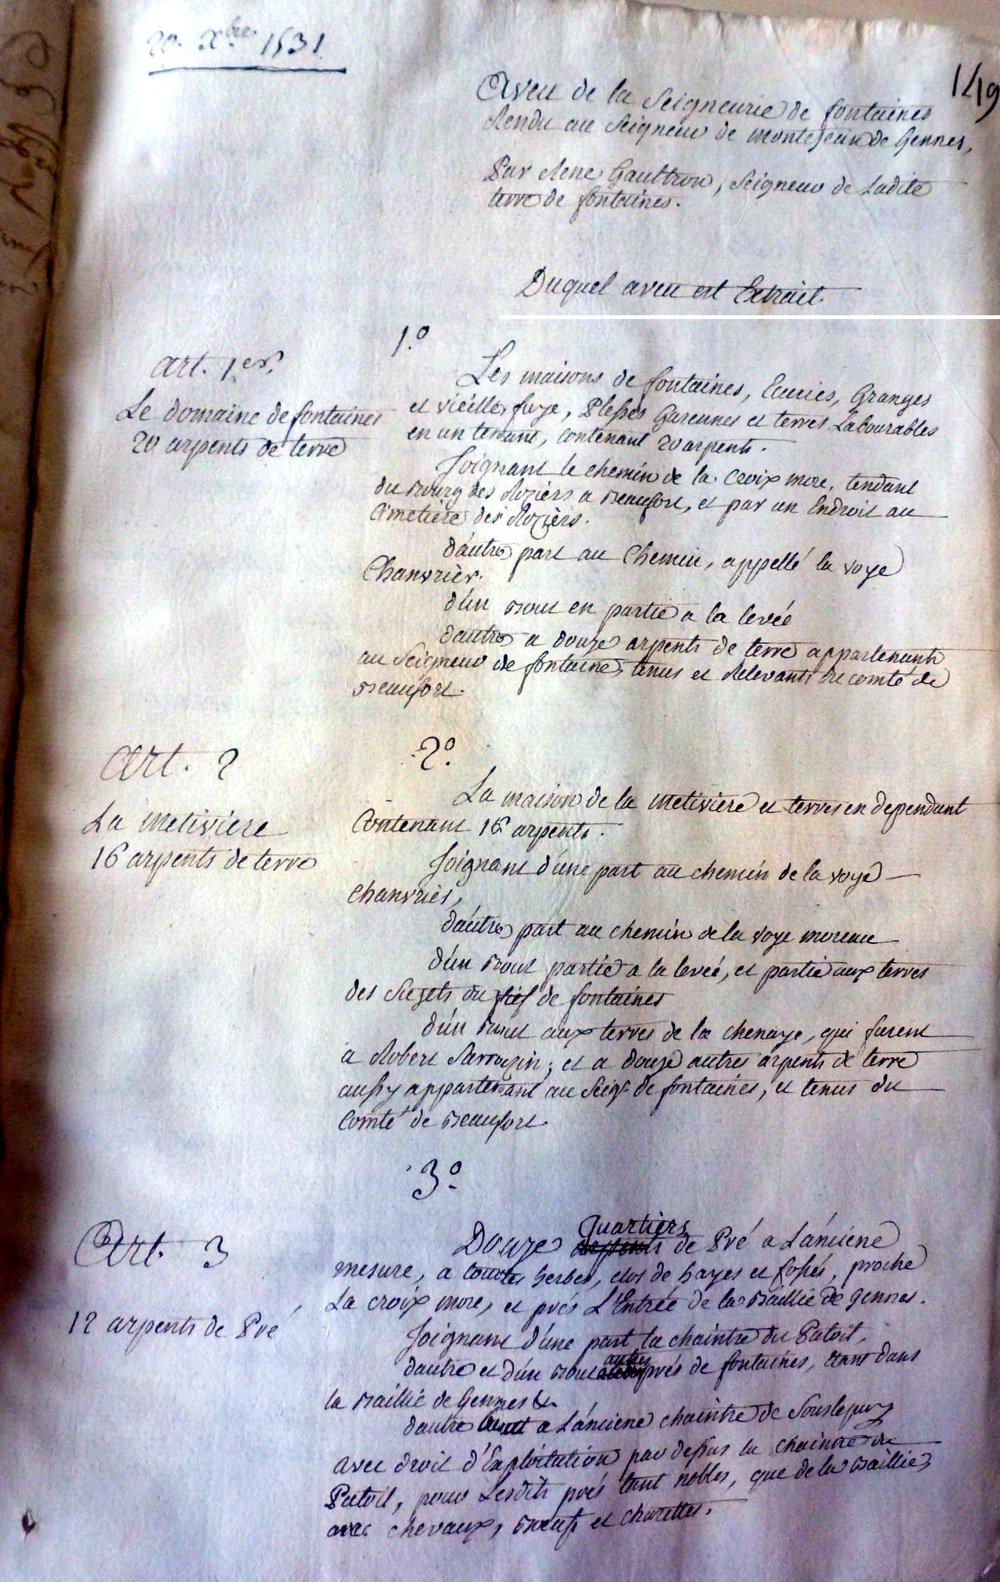 20. Xbre. 1531.
149
Aveu de la Seigneurie de fontaines
Rendu au Seigneur de montejean de Gennes,
Par Rene Gaultron, Seigneur de Ladite
terre de fontaines.
Duquel aveu est Extrait.
1.º
art. 1er.
Le domaine de fontaines
20 arpents de terre
Les maisons de fontaines, Ecuries, Granges
et vieille fuye, Plesses Garennes et terres Labourables
en un tenant, contenant 20 arpents.
Joignant le chemin de la Croix more, tendant
du Bourg des Roziers a Beaufort, et par un Endroit au
Cimetiere des Roziers.
d'autre part au Chemin, appellé la voye
Chanvrier.
d'un Bout en partie a la levée
d'autre a douze arpents de terre appartenants
au Seigneur de fontaine, tenus et Relevants du comté de
Beaufort.
2.º
Art. 2
La metiviere
16 arpents de terre
La maison de la metiviere et terres en dependant
Contenant 16 arpents.
Joignant d'une part au chemin de la voye
chanvries,
d'autre part au chemin de la voye moreau
d'un Bout partie a la levée, et partie aux terres
des Sujets du fief de fontaines
d'un Bout aux terres de la chenaye, qui furent
a Robert Sarrazin; et a douze autres arpents de terre
aussy appartenant au Seigr. de fontaines, et tenus du
Comté de Beaufort.
3.º
Art. 3
12 arpents de Pré
Douze Quartiers de Pré a L'anciene
mesure, a toutes herbes, clos de hayes et fossés, proche
La croix more, et prés L'Entrée de la Baillie de gennes.
Joignant d'une part la chaintre du Patoil,
d'autre et d'un Bout autres prés de fontaines, etant dans
la Baillie de Gennes &.
d'autre Bout a L'anciene chaintre de
avec droit d'Exploitation par dessus la chaintre du
Patoil, pour Lesdits prés tant nobles, que de la Baillie,
avec chevaux, Bœufs et charettes.